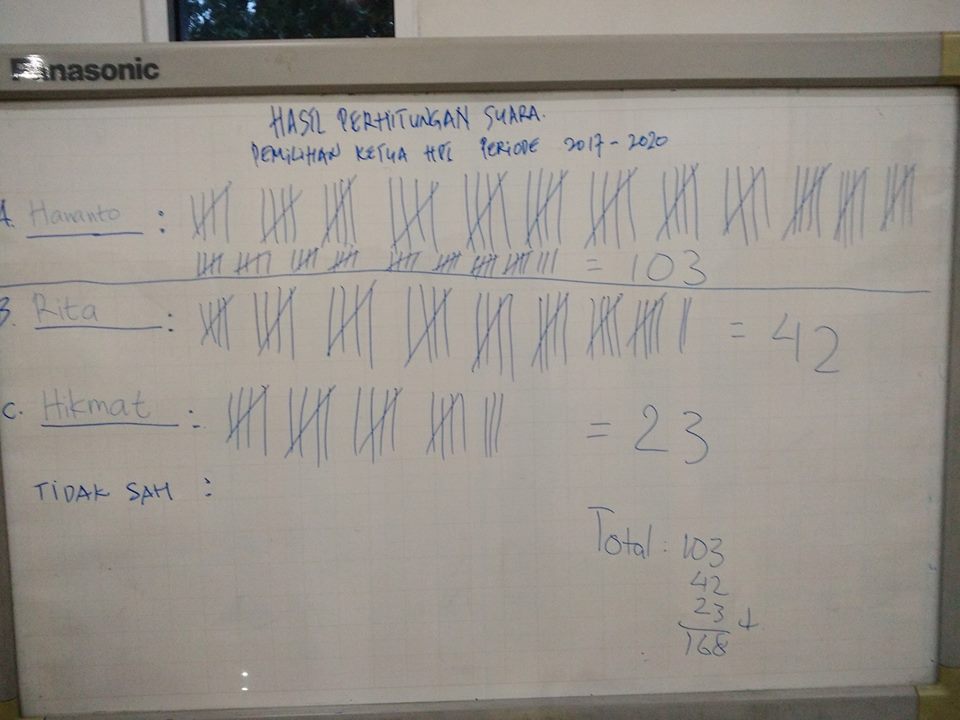 Panasonic
HASIL PERHITUNGAN SUARA.
PEMILIHAN KETUA HPI PERIODE 2017-2020
A. Hananto :
= 103
B. Rita : = 42
C. Hikmat : = 23
TIDAK SAH :
Total : 103
42
23 +
168